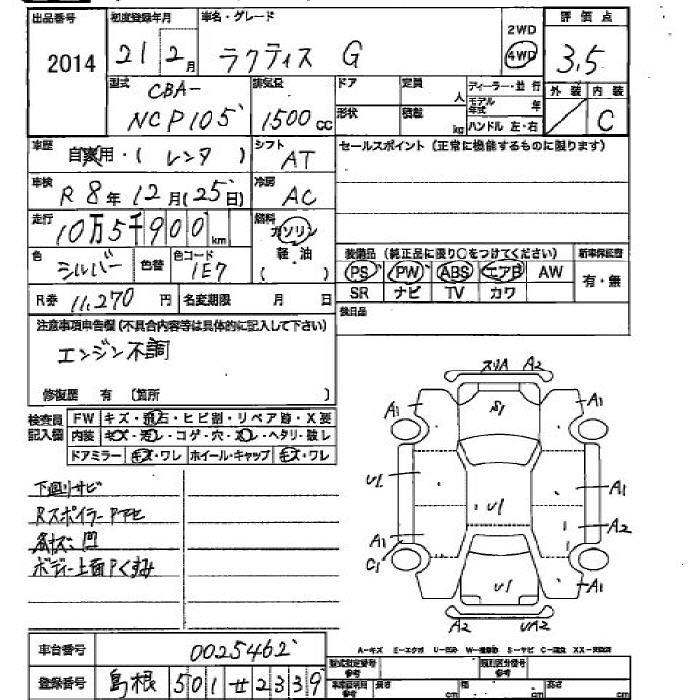 出品番号 初度登録年月 車名・グレード 2WD 評価点
2014 21 2月 ラクティス G 4WD 3.5
型式 CBA- 排気量 ドア 定員 人 ディーラー・並行 外装 内装
NCP105 1500cc 形状 積載 kg モデル年式 年 ハンドル 左・右 C
車歴 自家用・(レンタ) シフト AT セールスポイント (正常に機能するものに限ります)
車検 R8年12月(25日) 冷房 AC
走行 10万5千900km 燃料 ガソリン
色 シルバー 色替 色コード 1E7 軽・油 ( )
装備品 (純正品に限り○をつけてください) 新車保証書
PS PW ABS エアB AW 有・無
SR ナビ TV カワ
R券 11,270円 名変期限 月 日
後日品
注意事項申告欄(不具合内容等は具体的に記入して下さい)
エンジン不調
修復歴 有 〔箇所 〕
検査員記入欄 FW キズ・飛石・ヒビ割・リペア跡・X要
内装 キズ・汚レ・コゲ・穴・スレ・ヘタリ・破レ
ドアミラー キズ・ワレ ホイール・キャップ キズ・ワレ
スリA A2
A1 S1 A1
U1 U1 A1
A2
A1
C1
U1 A1
A2 UA2
下廻リサビ
Rスポイラー Pナセ
各キズ凹
ボデー上面Pくすみ
A-キズ E-エクボ U-凹み W-補修跡 S-サビ C-腐食 XX-交換済
車台番号 0025462
型式指定番号 参考 類別区分番号 参考
登録番号 島根 501 せ 2339
長さ cm 幅 cm 高さ cm